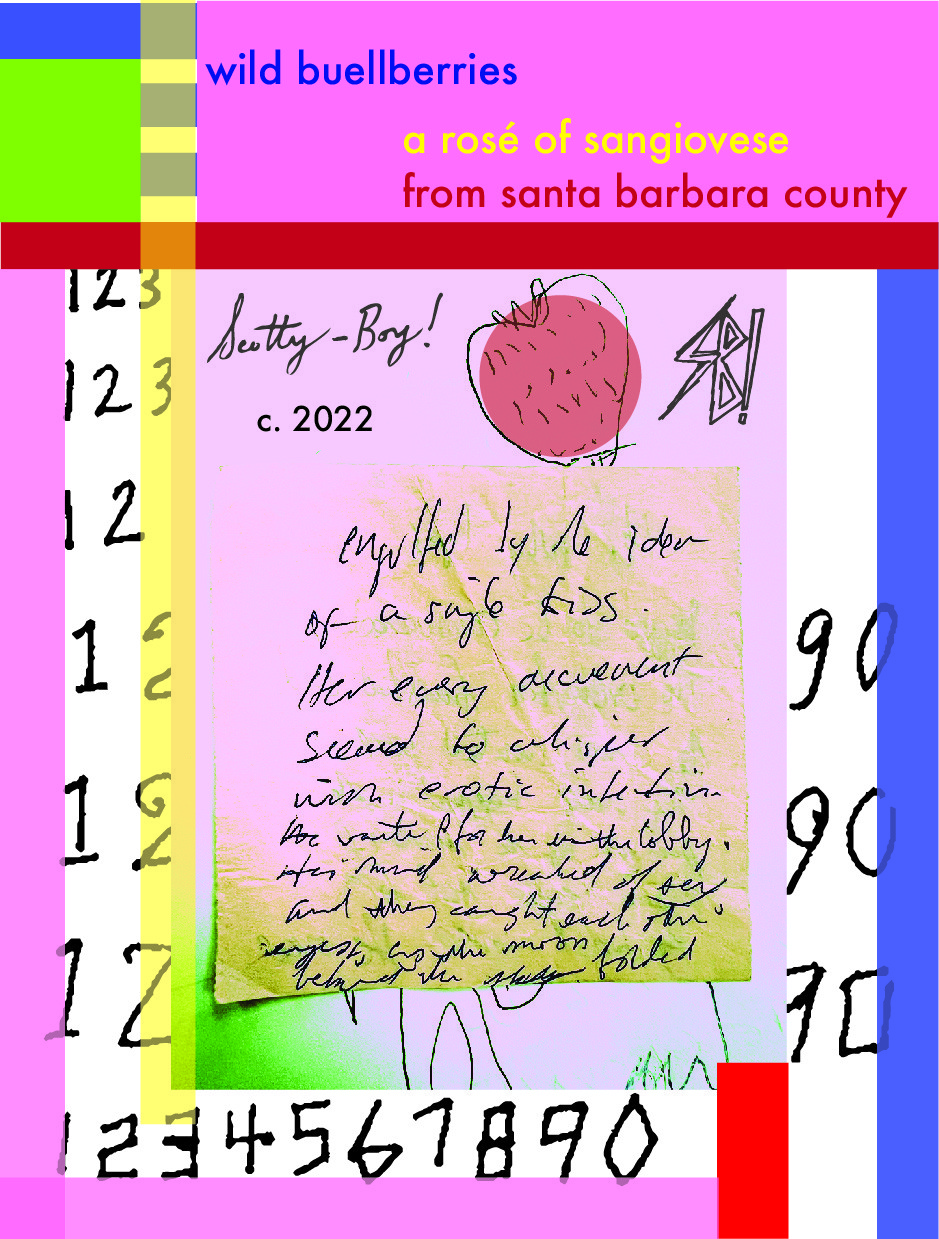 wild buellberries
a rosé of sangiovese
from santa barbara county
123
Scotty-Boy!
SB!
123
c. 2022
12
engulfed by the idea
of a single kiss.
12
90
Her every movement
seemed to whisper
with erotic intention
12
90
He waited for her in the lobby.
His mind wreaked of sex
and they caught each other's
12
90
as the moon folded
behind the
1234567890